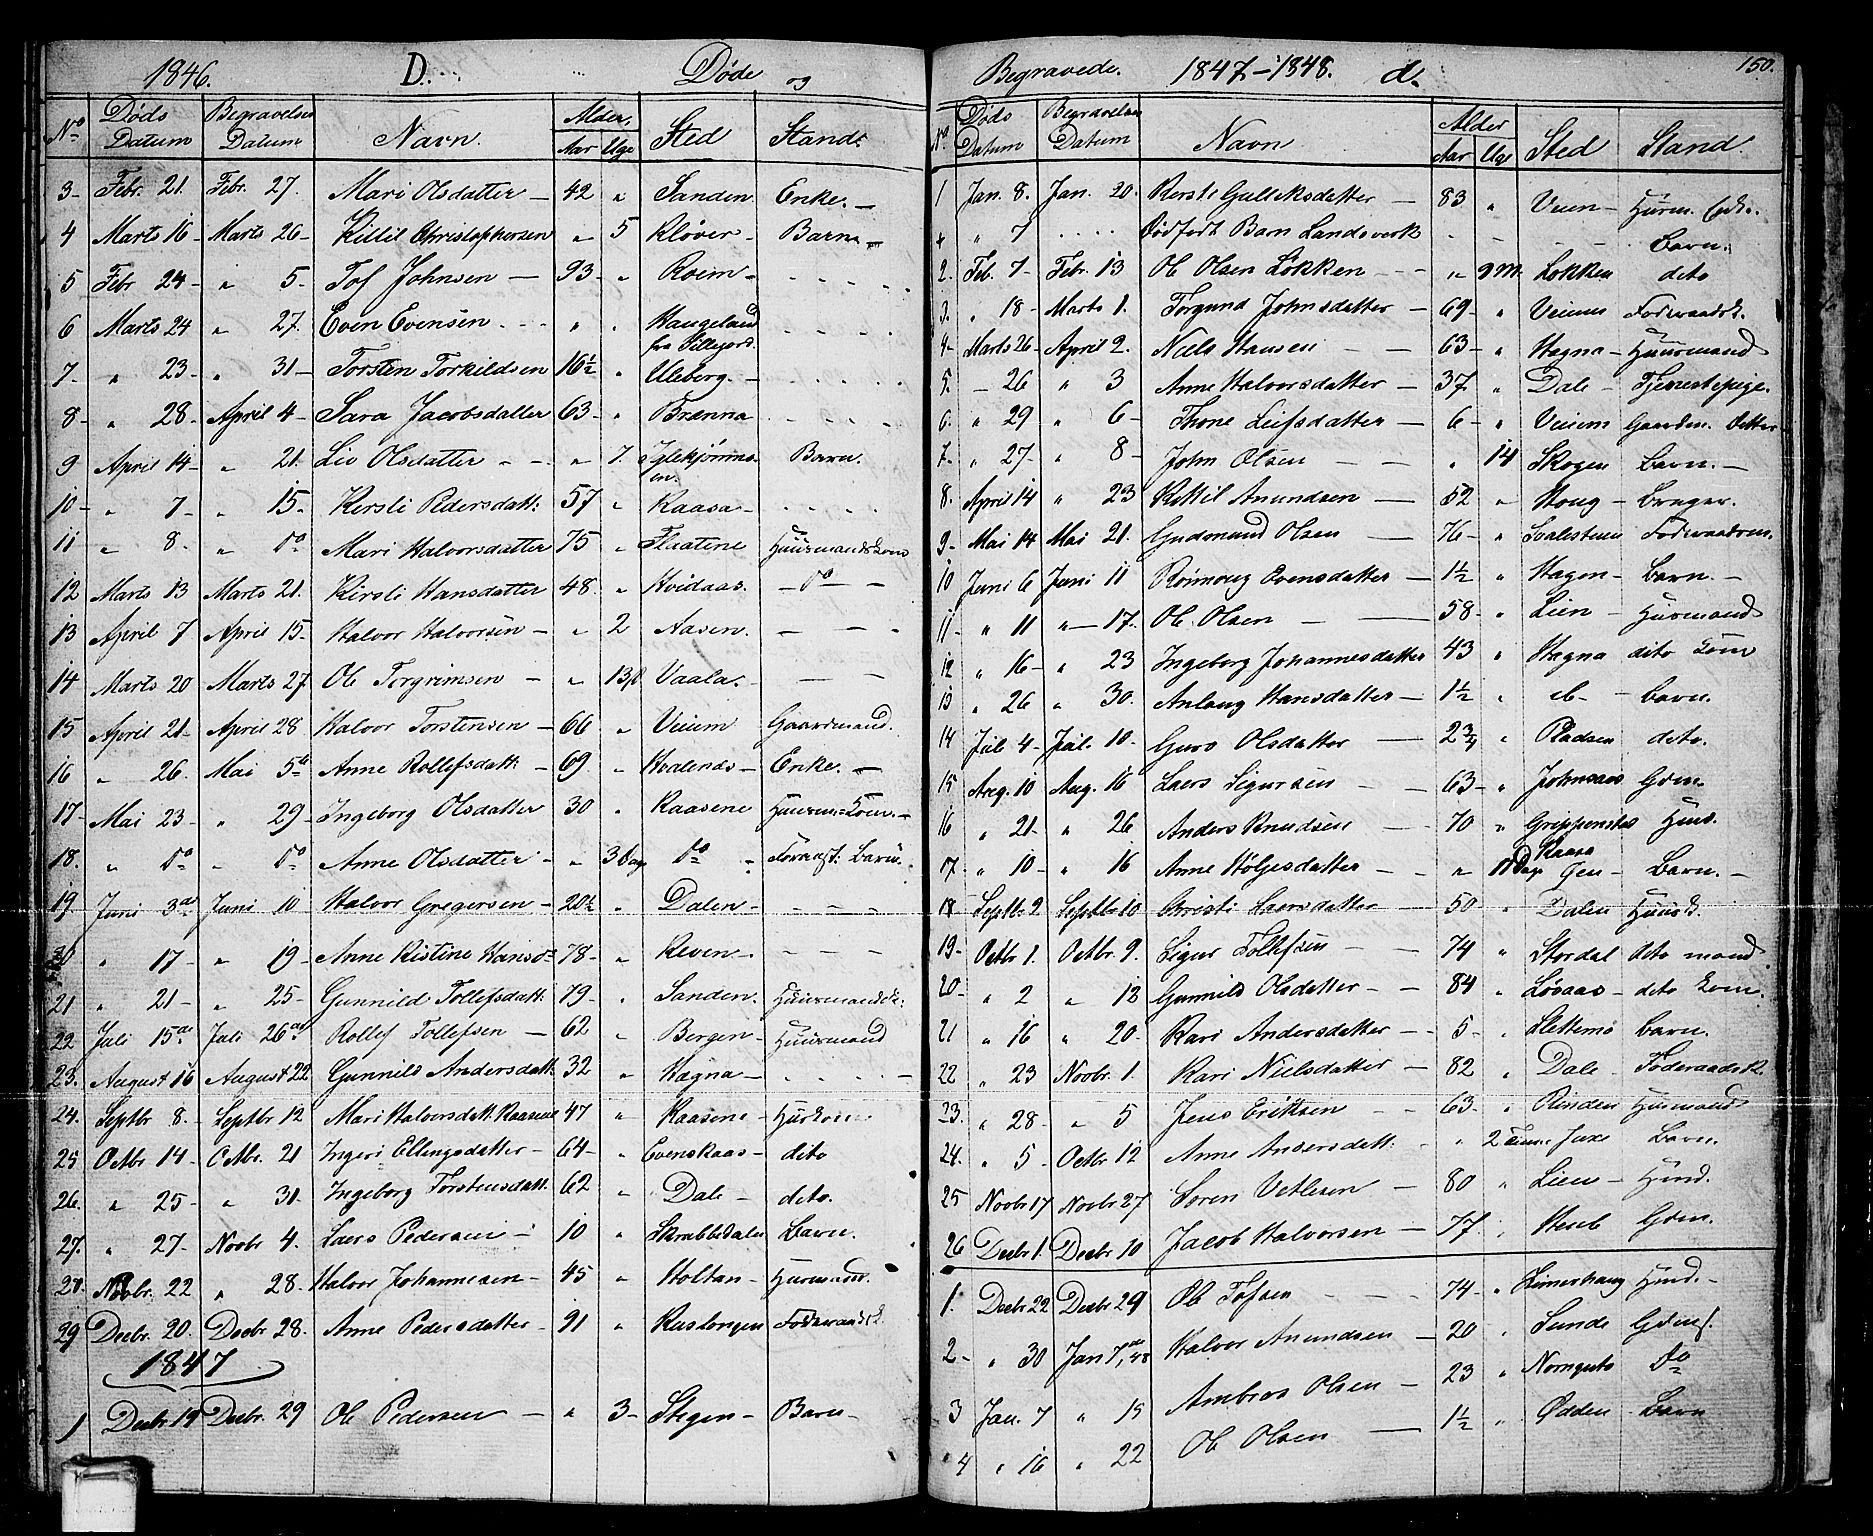 1846. D. Døde og
No Døds Datum Begravelses Datum Navn. Alder. Aar Uge Sted Stand:
3- Febr. 21. Febr. 27. Mari Olsdatter - 42 " Sanden Enke. -
4 Marts 16- Marts 26- Kittil Christophersen " 5 Kløver- Barn -
5 Febr 24- " 5- Tof Johnsen - 93- " Roim-
6 Marts 24 " 27. Even Evensen " Haugeland fra Sillejord.
7. " 23- " 31- Torsten Torkildsen 16½ " Uleberg. -
8- " 28. April 4- Sara Jacobsdatter 63- " Brænna
9 April 14- " 21. Liv Olsdatter - - " 7. Iglekjønmoen. Barn.
10- " 7- " 15- Kersti Pedersdatt: 57 " Raasa-
11 " 8- " do Mari Halvorsdatter 75 " Flaatene Huusmandskone
12 Marts 13 Marts 21. Kirsti Hansdatter 48. " Hvidaas. - do -
13 April 7 April 15- Halvor Halvorsen - " 2 Aasen. - - -
14 Marts 20 Marts 27 Ole Torgrimsen - " 13 Vaala. - -
15 April 21- April 28 Halvor Torstensen - 66 " Veium Gaardmand.
16 " 26. Mai 5te Anne Rollefsdatt: - 69 " Hvalends- Enke. -
17- Mai 23- " 29- Ingeborg Olsdatter 30 " Raasene Huusm: Kone. -
18. " do - do Anne Olsdatter - " 3 Dage do - Foranst: Barn.
19. Juni 3die Juni 10 Halvor Gregersen - 20½ " Dalen - - - -
20 " 17- " 19- Anne Kistine Hansd= 78- " Reven. - - -
21 " 21- " 25- Gunnild Tollefsdatt: 79- " Sanden. Huusmandsk:
22 Juli 15de Juli 26de Rollef Tollefsen - 62 " Bergen- Huusmand
23. August 16 August 22 Gunnild Andersdatt. 32 " Hagna-
24. Septbr 8- Septbr 12 Mari Halvorsdatt. Raasene 47 " Raasene- Huskone
25 Octbr 14- Octbr. 21 Ingeri Ellingsdatter- 64- " Evenskaas- dito
26. " 25- " 31. Ingeborg Torstensdatt. 62 " Dale- dito.
27. " 27- Novbr 4. Laers Pedersen - 10 " Skrabbedalen Barn.
28. Novbr. 22 " 28. Halvor Johannesen- 45 " Holtan- Husmand.
29 Decbr. 20. Decbr 28. Anne Pedersdatter- 91 " Kaslongen Foderaadsk.
1847
1 Decbr 19 Decbr. 29 Ole Pedersen - " 3- Stegen- Barn-
Begravede. 1847-1848. d. 150.
No Døds Datum Begravelses Datum Navn Alder Aar Uge Sted Stand.
1 Jan. 8. Jan. 20. Kersti Gulleksdatter - 83 " Veien-
" 7 Dødfødt Barn Landsverk - - - Barn.
2. Feb. 7- Febr. 13 Ole Olsen Løkken - - - " 9 M. Løkken dito
3. " 18- Marts 1. Torgund Johnsdatter - 69- " Veium Foderaadsk.
4- Marts 26- April 2. Niels Hansen - - 63- " Hagna- Huusmand
5. - 26 " 3 Anne Halvorsdatter - 37 " Dale- Tjenestepige.
6. " 29 " 6- Thone Leifsdatter - 6- " Veium Gaardm. Datter
7- " 27- " 8- John Olsen - - " 14 Skogen Barn. -
8. April 14 " 23 Kittil Anundsen - 52 " Houg- Bruger.
9- Mai 14 Mai 21. Gudmund Olsen - 76- " Foderaadsm.
10 Juni 6 Juni 11 Roimoug Evensdatter - 1½ " Hagen- Barn. -
11- " 11 "- 17. Ole Olsen - - 58- " Lien- Husmand
12 " 16- " 23 Ingeborg Johannesdatter 43 " Hagna dito Kone
13 " 26 " 30. Anlaug Hansdatter - 1½ " ib- - Barn.
14 Juli 4- Juli. 10- Guro Olsdatter - 2¾ " Pladsen dito.
15 Aug. 10 Aug. 16 Laers Sigursen - 63- " Johnsaas Gdm.
16 " 21- " 26 Anders Knudsen - - 70 " Huus.
17. " 10- " 16 Anne Høljesdatter - - " 11 Dage Raasa Barn. -
18 Septbr 2 Septbr 10 Christi Laersdatter - 50- " Dalen Huusk.
19- Octbr 1. Octbr. 9. Sigur Tollefsen - - 74 " Stordal dito mand
20- " 2 " 12 Gunnild Olsdatter - - 84 " Løvaas- dito kone.
21 " 16 " 20. Kari Andersdatter - - 5- " Slettemo Barn.
22 " 23 Novbr. 1. Kari Nielsdatter - 82 " Dale- Føderaadsk
23. " 28- " 5 Jens Eriksen - - 63- " Rinden Husmand
24. " 5- Octbr 12 Anne Andersdatt: - " 2 Timer Juve Barn.
25 Novbr 17 Novbr 27 Søren Vetlesen - 80 " Lien- Husmd.
26 Decbr 1. Decbr 10 Jacob Halvorsen - 77. " Heseb Gdm.
1. Decbr 22 Decbr 29 Ole Tofsen - - - 74- " Husmd. -
2- " 30 Jan 7de, 48 Halvor Anundsen - 20 " Sunde
3 Jan. 7 " 15 Ambros Olsen - 23 " Do
4 " 16 " 22 Ole Olsen - 1½ " Ødden Barn